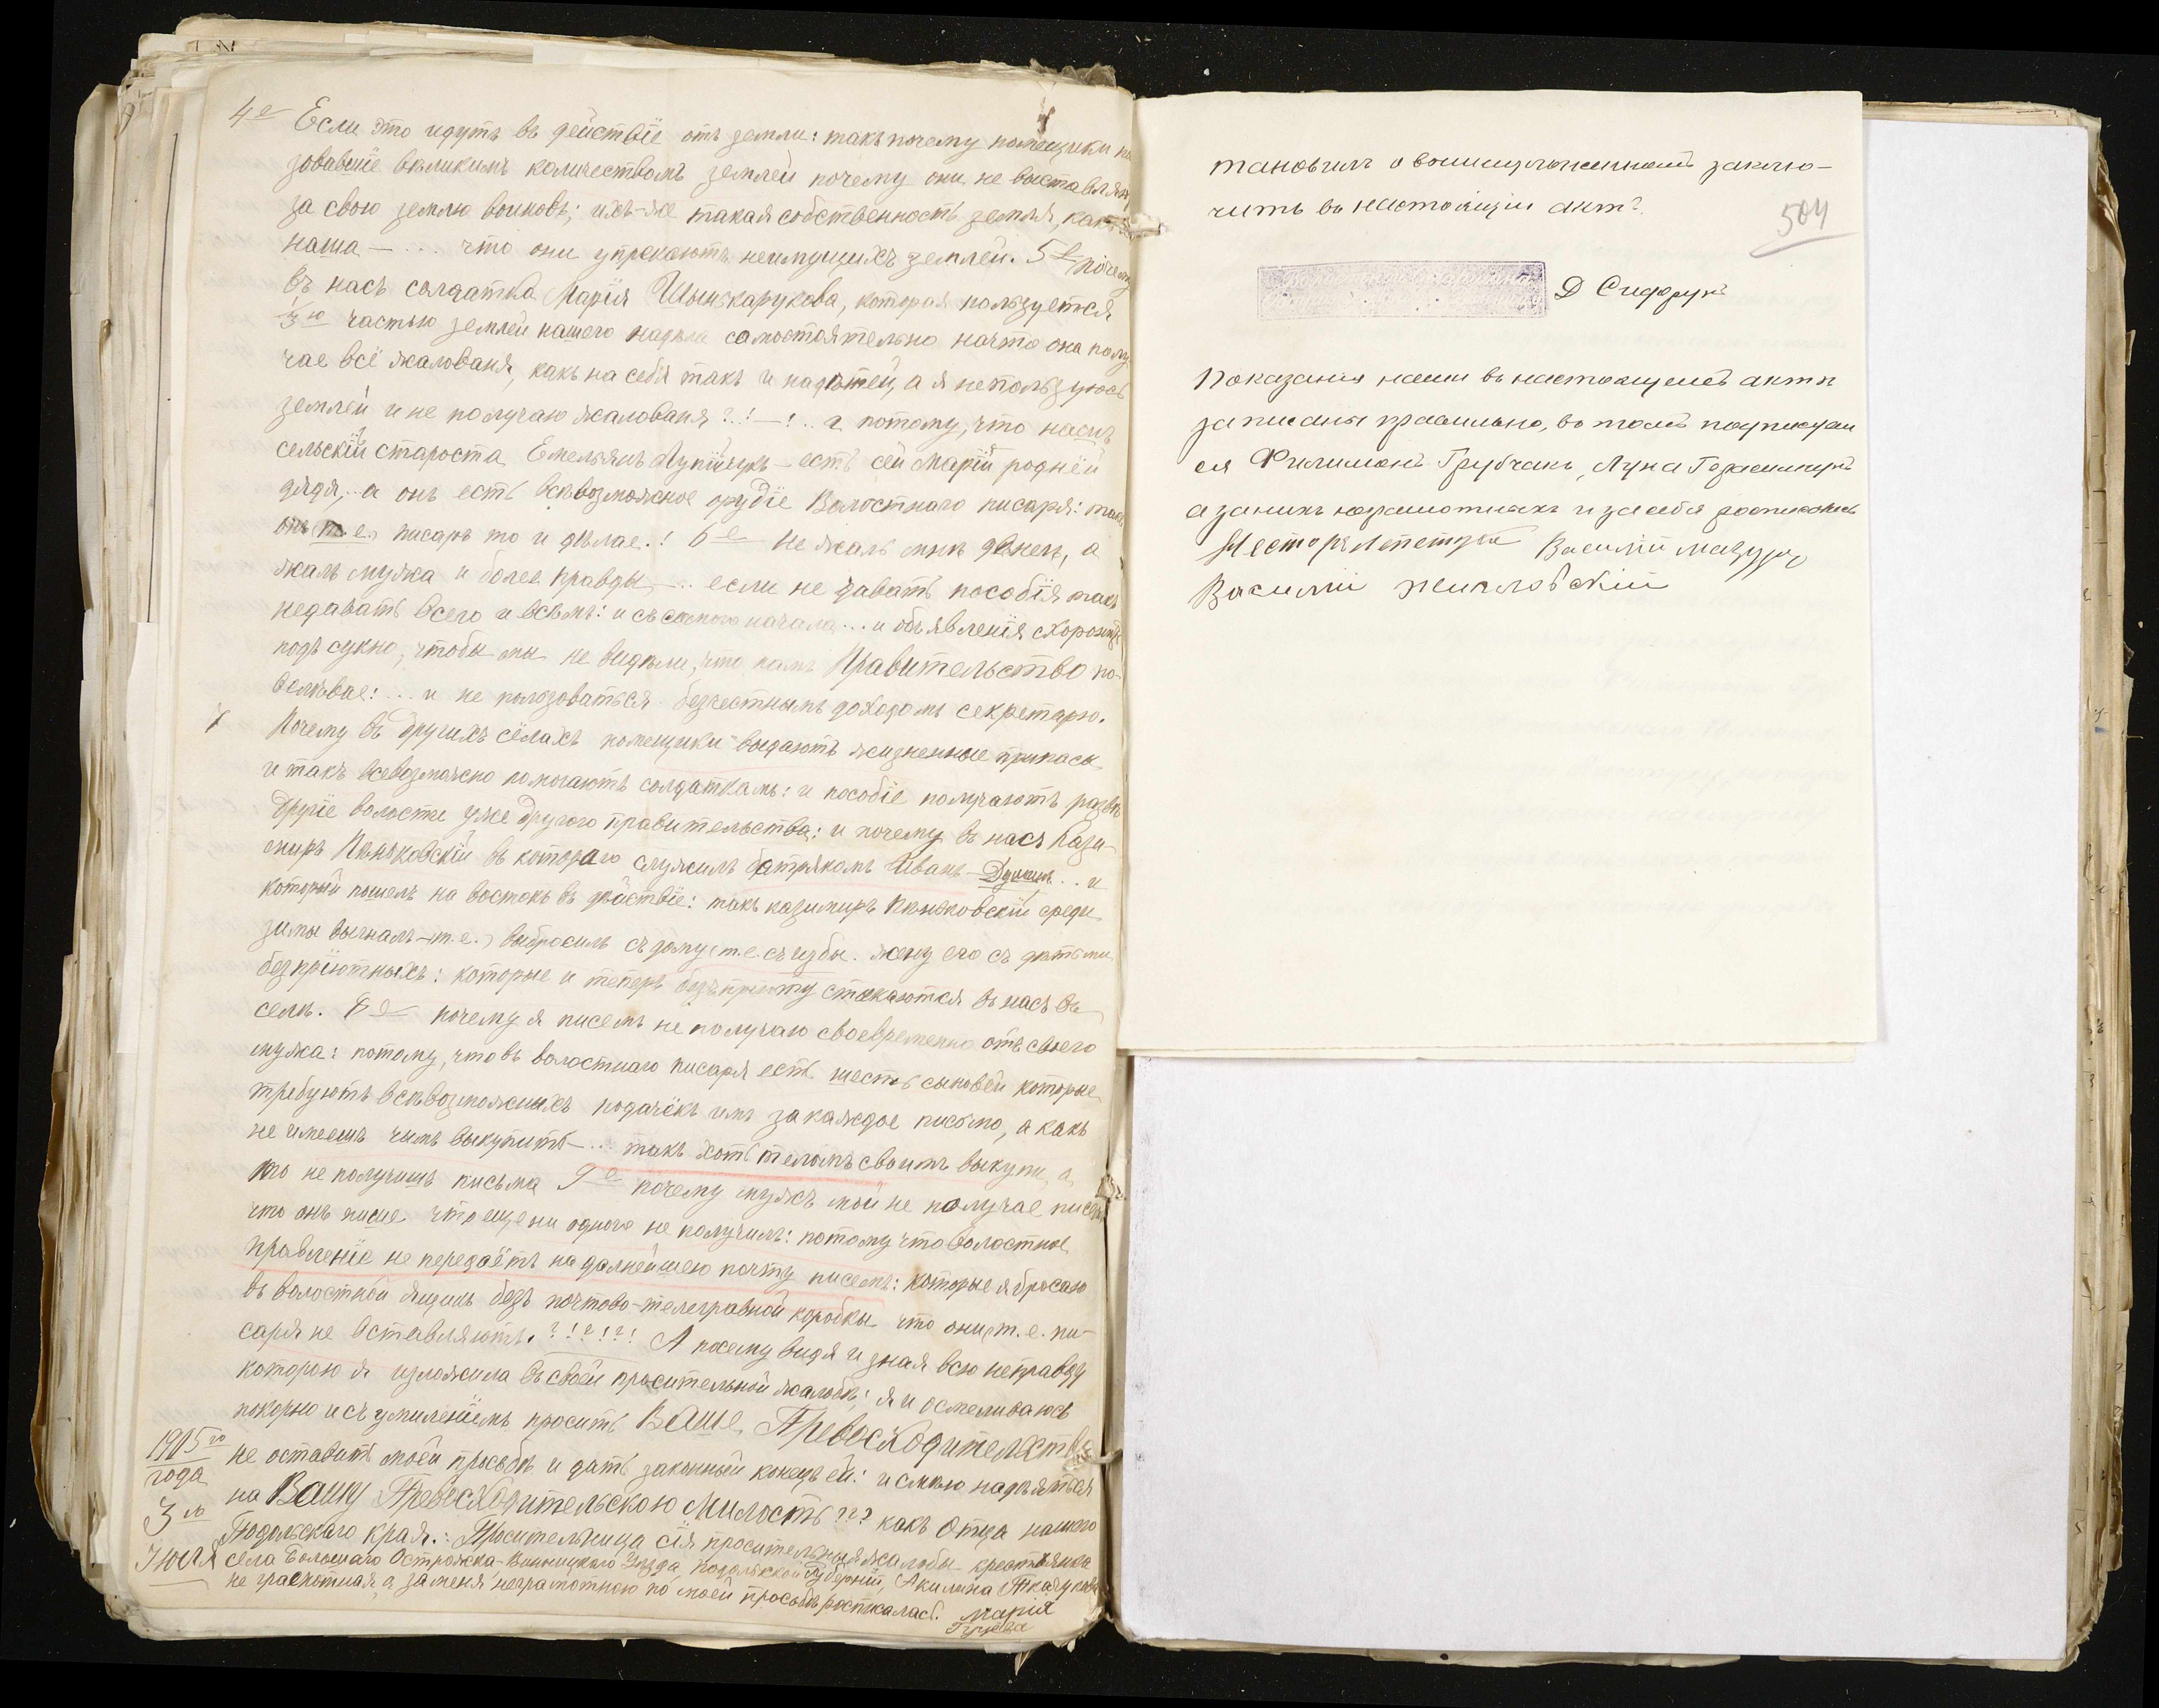 4е Если это идутъ въ действіе отъ земли: такъ почему помещики по
зовавшіе великимъ каличествомъ землей почему они не выставляю
за свою землю воиновъ; ихъ-же такая собственность земля, какъ
наша — ... что они упрекаютъ неимущихъ землей. 5е/ почему
въ насъ салдатка Марія Шынкарукова, которая пользуется
⅓ю частью землей нашего надела самостоятельно начто она полу
чае всё жалованя, какъ на себя такъ и на детей, а я не пользуюсь
землей и не получаю жалованя?.!—!.. а потому, что насъ
сельскій староста Емельянъ Лупійчукъ — есть сей Марій родней
дядя,.. а онъ есть всѣвозможное орудіе Валостнаго писаря: такъ
онъ (т. е.) писарь то и дѣлае.! 6е не жаль мнѣ денегъ, а
жаль мужа и более правды —.. если не давать пособія такъ
недавать всего и всѣмъ: и съ самого начала... и объявленія схоронить
подъ сукно, чтобы мы не видѣли, что намъ Правительство по-
велѣвае:... и не ползоваться безчестнымъ доходомъ секретарю.
7 Почему въ другихъ сёлахъ помещики выдаютъ жизненные припасы
и такъ всевозможно помогаютъ солдаткамъ: и пособіе получаютъ развѣ
другіе волости уже другого правительства: и почему въ насъ Кази-
миръ Пеньковскій въ котораго служилъ батракомъ Иванъ ... и
который пошелъ на востокъ въ действіе: такъ казимиръ Пеньковскій среди
зимы выгналъ—(т.е.) выбросилъ съ дому (т.е. съ избы. жену его съ детьми
безпріютныхъ: которые и теперь безъ пріюту стекаются въ насъ въ
селѣ. 8е почему я писемъ не получаю своевременно отъ своего
мужа: потому, что въ волостнаго писаря есть шесть сыновей которые
требуютъ всѣвозможныхъ подачёкъ имъ за каждое письмо, а какъ
не имеешъ чимъ выкупить —... такъ хоть теломъ своимъ выкупи, а
то не получишъ письма 9е почему мужъ мой не получае писемъ
что онъ пише что еще ни одного не получилъ: потому что волостное
правленіе не передаётъ на далнейшею почту писемъ: которые я бросаю
въ волостной ящикъ безъ почтово-телегравной коробки что они т. е. пи-
саря не оставляютъ.?!?!?! А посему видя и зная всю неправду
которою я изложила въ своей просительной жалобѣ; я и осмеливаюсь
покорно и съ умиленіемъ просить Ваше Превосходителхство
1905го не оставить моей прозьбѣ и дать законный конецъ ей: и смѣю надѣяться
года на Вашу Превосходительскою Милость??? какъ Отца нашего
3го Подольскаго края.: Просительница сія просительныя жалобы крестьянка
Июля села Большаго Острожка-Винницкаго Уезда, Подольской Губерній, Акилина Ткачукова
не грамотная, а за меня неграмотною по моей прозьбѣ росписалась. Марія
Гуцова
тановилъ о вышеизложенномъ заклю-
чить въ настоящій актъ.
504
Показанія наши въ настоящемъ актѣ
записаны правильно, въ томъ подписуем
ся Филимонъ Грубчакъ, Лука Герасимчукъ
а за нихъ неграмотныхъ и за себя росписались
Василій Мазуръ
Василій